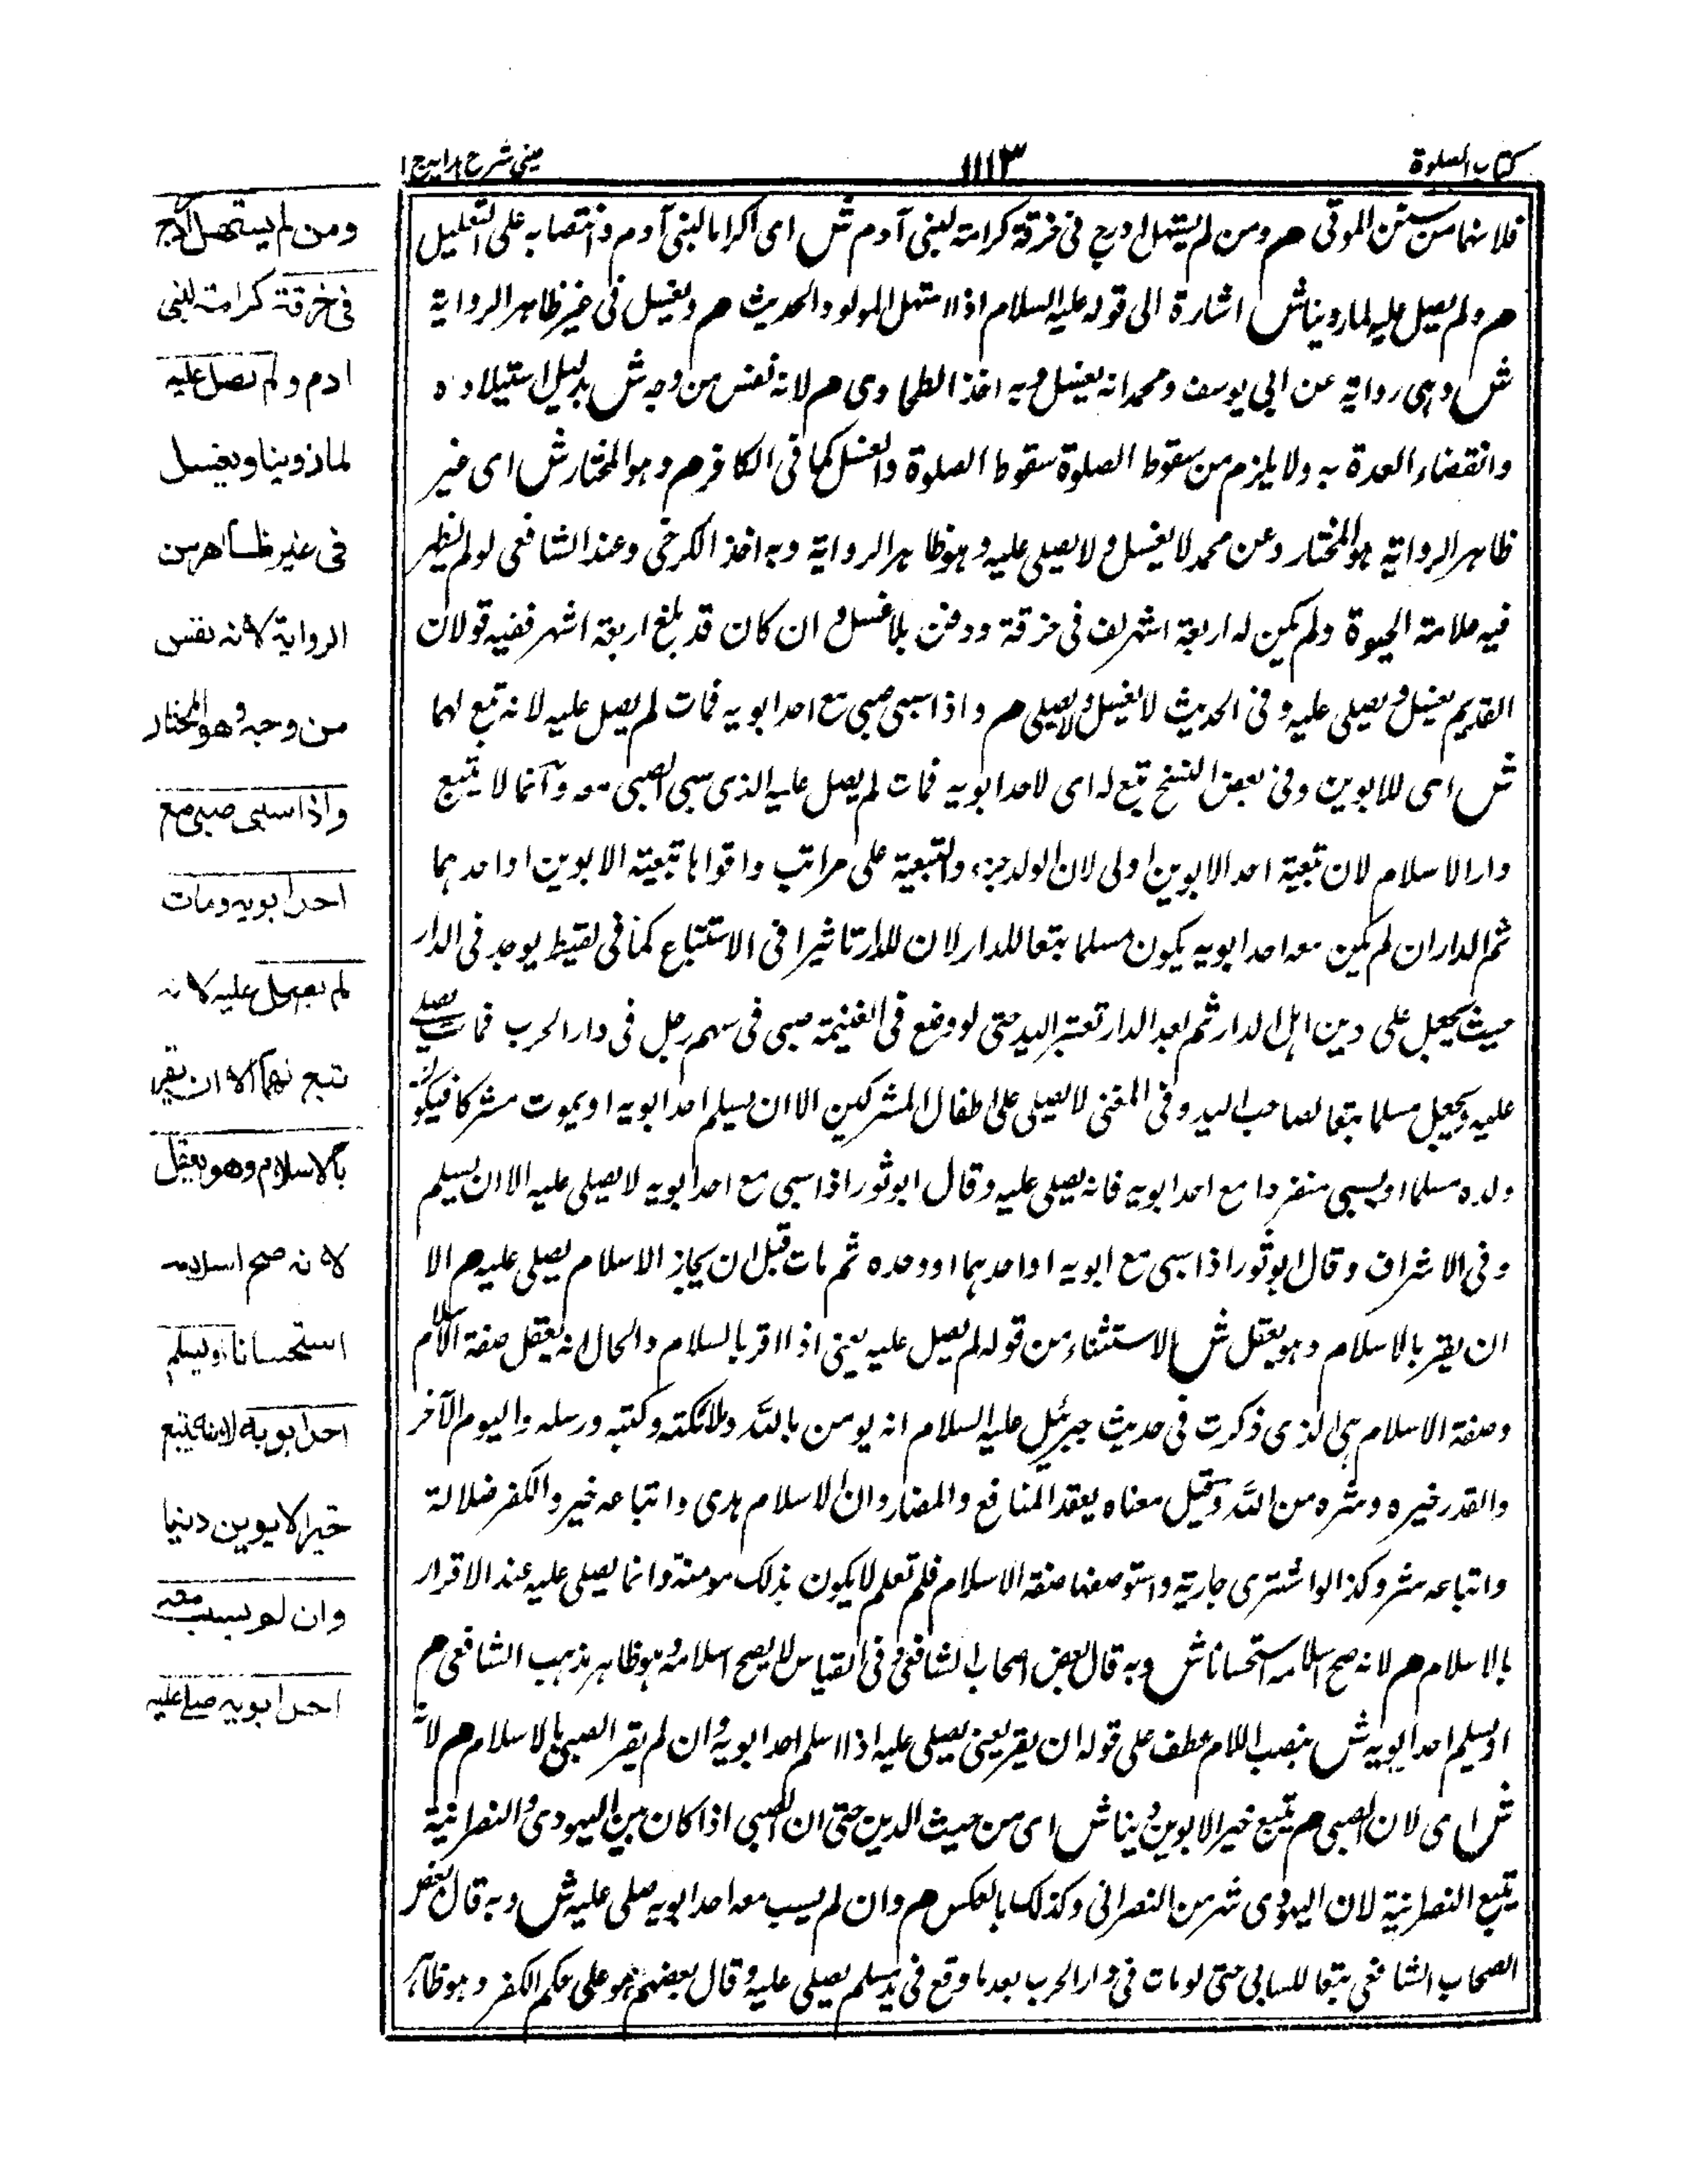 كتاب الصلوة
١١١٣
عينى شرح هدايه ج ١
فلانها من سنن الموتى هم ومن لم يستهل ادرج فى خرقة كرامة لبنى آدم ش اى اكراما لبنى آدم وانتصابه على التعليل
هم ولم يصل عليه لما روينا ش اشارة الى قوله عليه السلام اذا استهل المولود الحديث هم ويغسل فى غير ظاهر الرواية
ش وهى رواية عن ابى يوسف ومحمد انه يغسل وبه اخذ الطحاوى هم لانه نفس من وجه ش بدليل استيلاده
وانقضاء العدة به ولا يلزم من سقوط الصلوة سقوط الصلوة والغسل كما فى الكافر هم وهو المختار ش اى غير
ظاهر الرواية هو المختار وعن محمد لا يغسل ولا يصلى عليه وهو ظاهر الرواية وبه اخذ الكرخى وعند الشافعى لو لم يظهر
فيه علامة الحيوة ولم يكن له اربعة اشهر يلف فى خرقة ودفن بلا غسل وان كان قد بلغ اربعة اشهر ففيه قولان
القديم يغسل ويصلى عليه وفى الحديث لا يغسل ولا يصلى هم واذا سبى صبى مع احد ابويه فمات لم يصل عليه لانه تبع لهما
ش اى للابوين وفى بعض النسخ تبع له اى لاحد ابويه فمات لم يصل عليه الذى سبى الصبى معه وانما لا يتبع
دار الاسلام لان تبعية احد الابوين اولى لان الولد جزء والتبعية على مراتب واقواها تبعية الابوين او احدهما
ثم الدار ان لم يكن معه احد ابويه يكون مسلما تبعا للدار لان للدار تاثيرا فى الاستتباع كما فى لقيط يوجد فى الدار
حيث يجعل على دين اهل الدار ثم بعد الدار تعتبر اليد حتى لو وضع فى الغنيمة صبى فى سهم رجل فى دار الحرب فمات يصلى
عليه ويجعل مسلما تبعا لصاحب اليد وفى المغنى لا يصلى على اطفال المشركين الا ان يسلم احد ابويه او يموت مشركا فيكون
ولده مسلما او يسبى منفردا مع احد ابويه فانه يصلى عليه وقال ابو ثور اذا سبى مع احد ابويه لا يصلى عليه الا ان يسلم
وفى الاشراف وقال ابو ثور اذا سبى مع ابويه او احدهما او وحده ثم مات قبل ان يجاز الاسلام يصلى عليه هم الا
ان يقر بالاسلام وهو يعقل ش الاستثناء من قوله لم يصل عليه يعنى اذا اقر بالسلام والحال انه يعقل صفة الاسلام
وصفة الاسلام هى الذى ذكرت فى حديث جبرئيل عليه السلام انه يومن بالله وملائكته وكتبه ورسله واليوم الآخر
والقدر خيره وشره من الله وقيل معناه يعقد المنافع والمضار وان الاسلام هدى واتباعه خير والكفر ضلالة
واتباعه شر وكذا لو اشترى جارية واستوصفها صفة الاسلام فلم تعلم لا يكون بذلك مومنة وانما يصلى عليه عند الاقرار
بالاسلام هم لانه صح اسلامه استحسانا ش وبه قال بعض اصحاب الشافعى وفى القياس لا يصح اسلامه وهو ظاهر مذهب الشافعى هم
او يسلم احد ابويه ش بنصب اللام عطف على قوله ان يقر يعنى يصلى عليه اذا اسلم احد ابويه وان لم يقر الصبى بالاسلام هم لانه
ش اى لان الصبى هم يتبع خير الابوين دينا ش اى من حيث الدين حتى ان الصبى اذا كان بين اليهودى والنصرانية
يتبع النصرانية لان اليهودى شر من النصرانى وكذلك بالعكس هم وان لم يسب معه احد ابويه صلى عليه ش وبه قال بعض
الصحاب الشافعى تبعا للسابى حتى لو مات فى دار الحرب بعد ما وقع فى يد مسلم يصلى عليه وقال بعضهم هو على حكم الكفر وهو ظاهر
ومن لم يستهل ادرج
فى خرقة كرامة لبنى
ادم ولم يصل عليه
لما روينا ويغسل
فى غير ظاهر من
الرواية لانه نفس
من وجه وهو المختار
واذا سبى صبى مع
احد ابويه ومات
لم يصل عليه لانه
تبع لهما الا ان يقر
بالاسلام وهو يعقل
لانه صح اسلامه
استحسانا او يسلم
احد ابويه لانه يتبع
خير الابوين دينا
وان لم يسب معه
احد ابويه صلى عليه